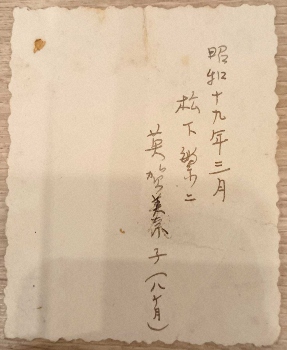 昭和十九年三月
松下繁二
英智美奈子(八ヶ月)